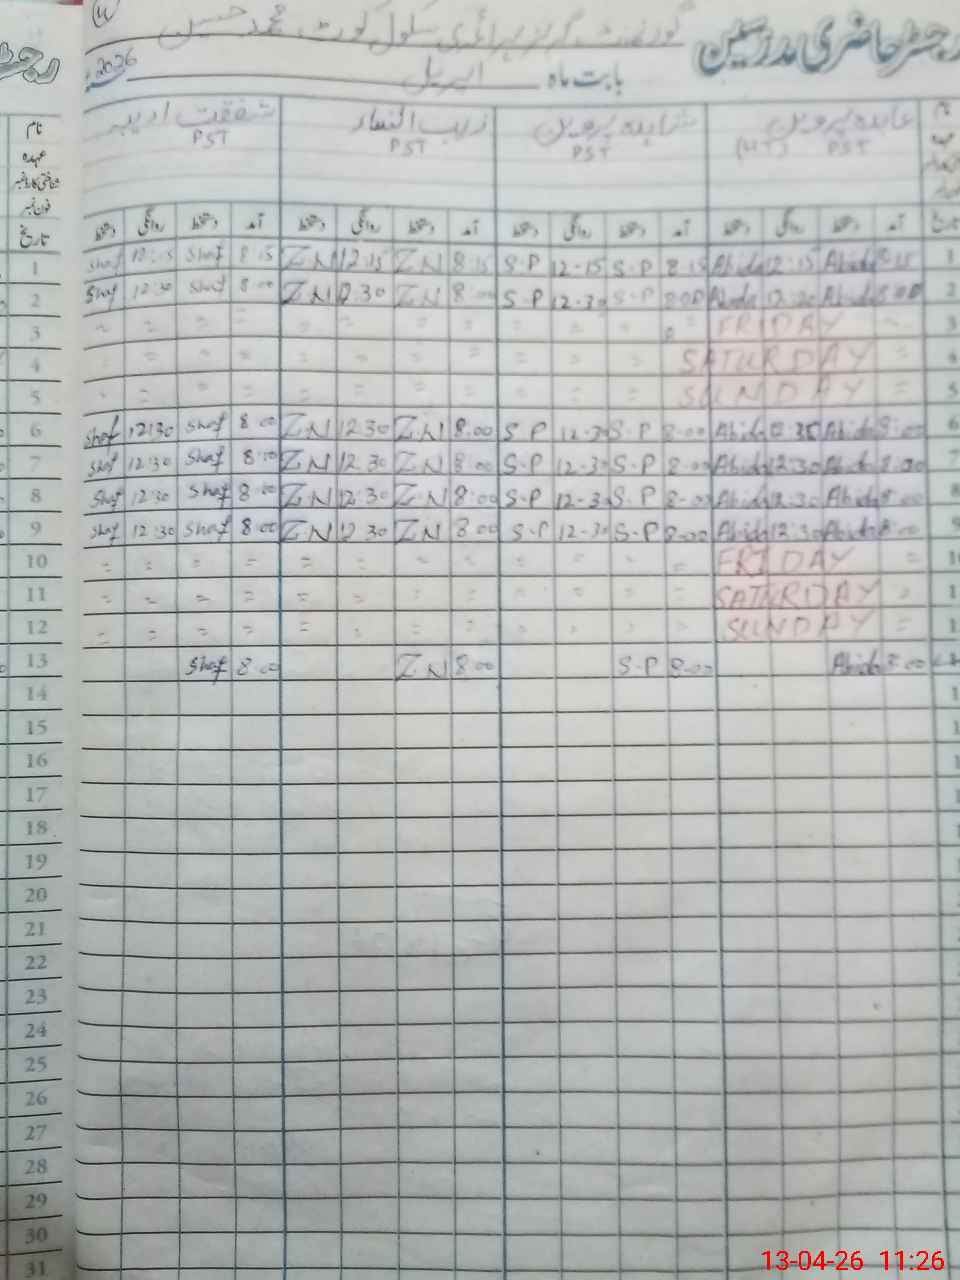 رجسٹر حاضری مدرسین گورنمنٹ گرلز پرائمری سکول کوٹ محمد حسین
بابت ماہ اپریل 2026
نام عابدہ پروین شاہدہ پروین زیب النساء شفقت ادیبہ
عہدہ PST (HT) PST PST PST
تاریخ آمد دستخط روانگی دستخط آمد دستخط روانگی دستخط آمد دستخط روانگی دستخط آمد دستخط روانگی دستخط
1 Shaf 12:15 Shaf 8:15 ZN 12:15 ZN 8:15 S.P 12-15 S.P 8:15 Abida 12:15 Abida 8:15
2 Shaf 12:30 Shaf 8:00 ZN 12:30 ZN 8:00 S.P 12-30 S.P 8:00 Abida 12:30 Abida 8:00
3 FRIDAY
4 SATURDAY
5 SUNDAY
6 Shaf 12:30 Shaf 8:00 ZN 12:30 ZN 8:00 S.P 12-30 S.P 8-00 Abida Abida 8:00
7 Shaf 12:30 Shaf 8:00 ZN 12:30 ZN 8:00 S.P 12-30 S.P 8-00 Abida 12:30 Abida 8:00
8 Shaf 12:30 Shaf 8:00 ZN 12:30 ZN 8:00 S.P 12-30 S.P 8-00 Abida 12:30 Abida 8:00
9 Shaf 12:30 Shaf 8:00 ZN 12:30 ZN 8:00 S.P 12-30 S.P 8-00 Abida 12:30 Abida 8:00
10 FRIDAY
11 SATURDAY
12 SUNDAY
13 Shaf 8:00 ZN 8:00 S.P 8-00 Abida 8:00
14
15
16
17
18
19
20
21
22
23
24
25
26
27
28
29
30
31
13-04-26 11:26